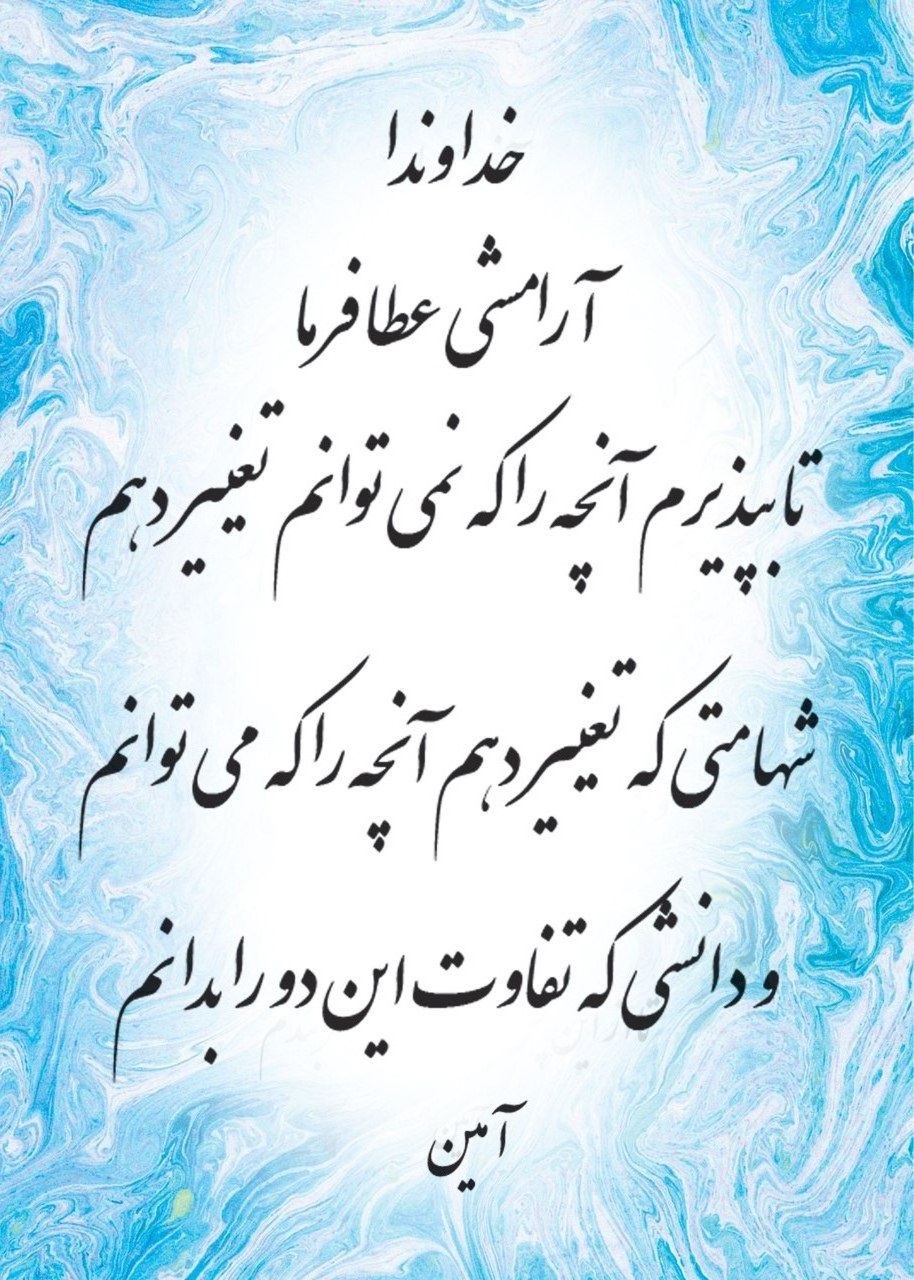 خداوندا
آرامشی عطا فرما
تا بپذیرم آنچه را که نمی توانم تغییر دهم
شهامتی که تغییر دهم آنچه را که می توانم
و دانشی که تفاوت این دو را بدانم
آمین